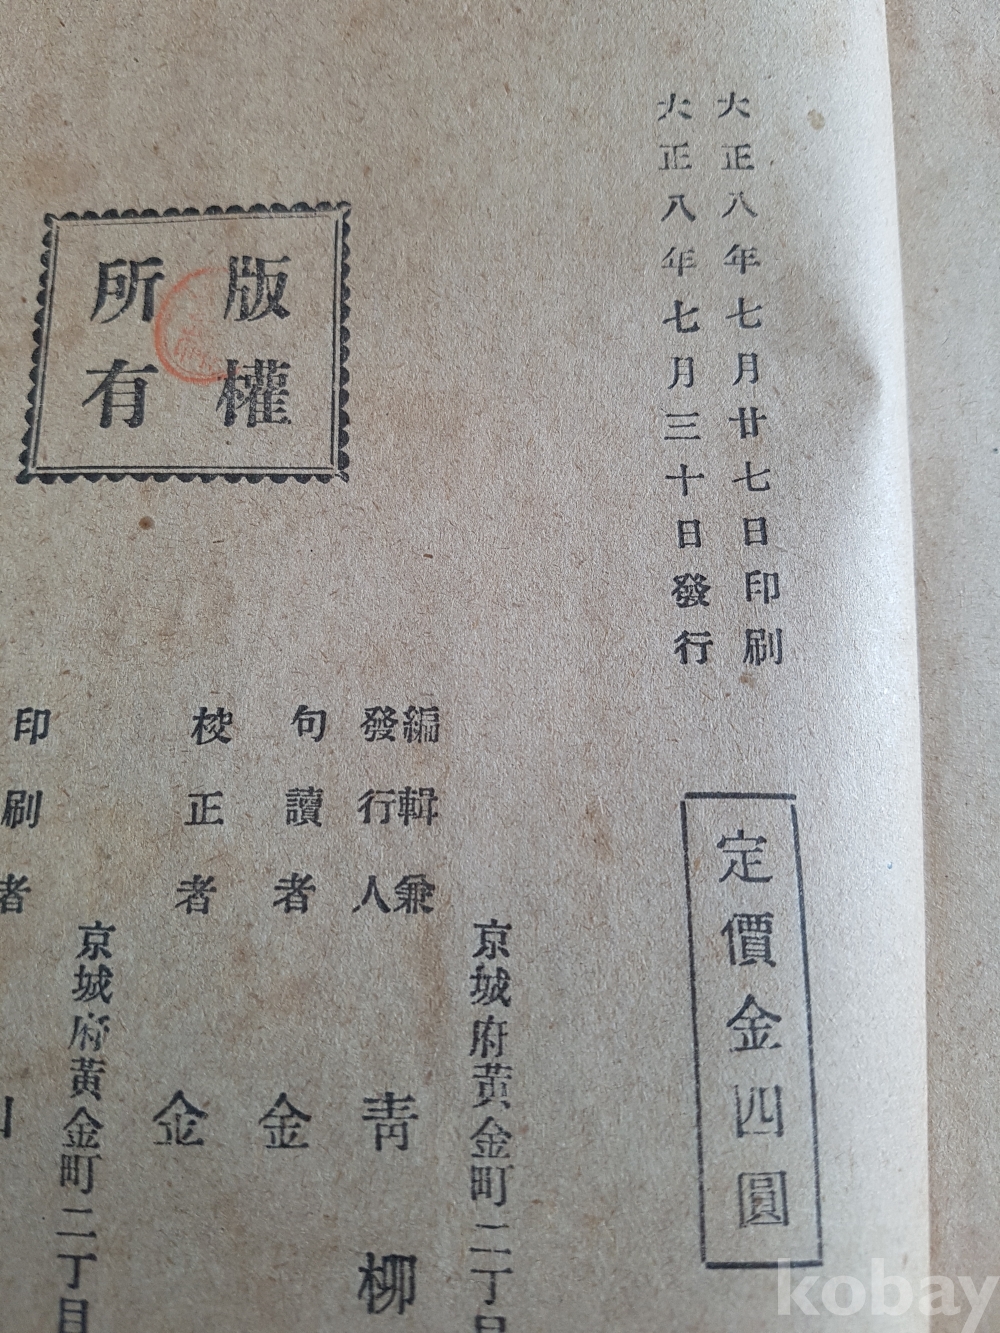 大正八年七月廿七日印刷
大正八年七月三十日發行
定價金四圓
版權
所有
京城府黃金町二丁目
編輯兼
發行人
靑柳
句讀者
金
校正者
金
京城府黃金町二丁目
印刷者
kobay